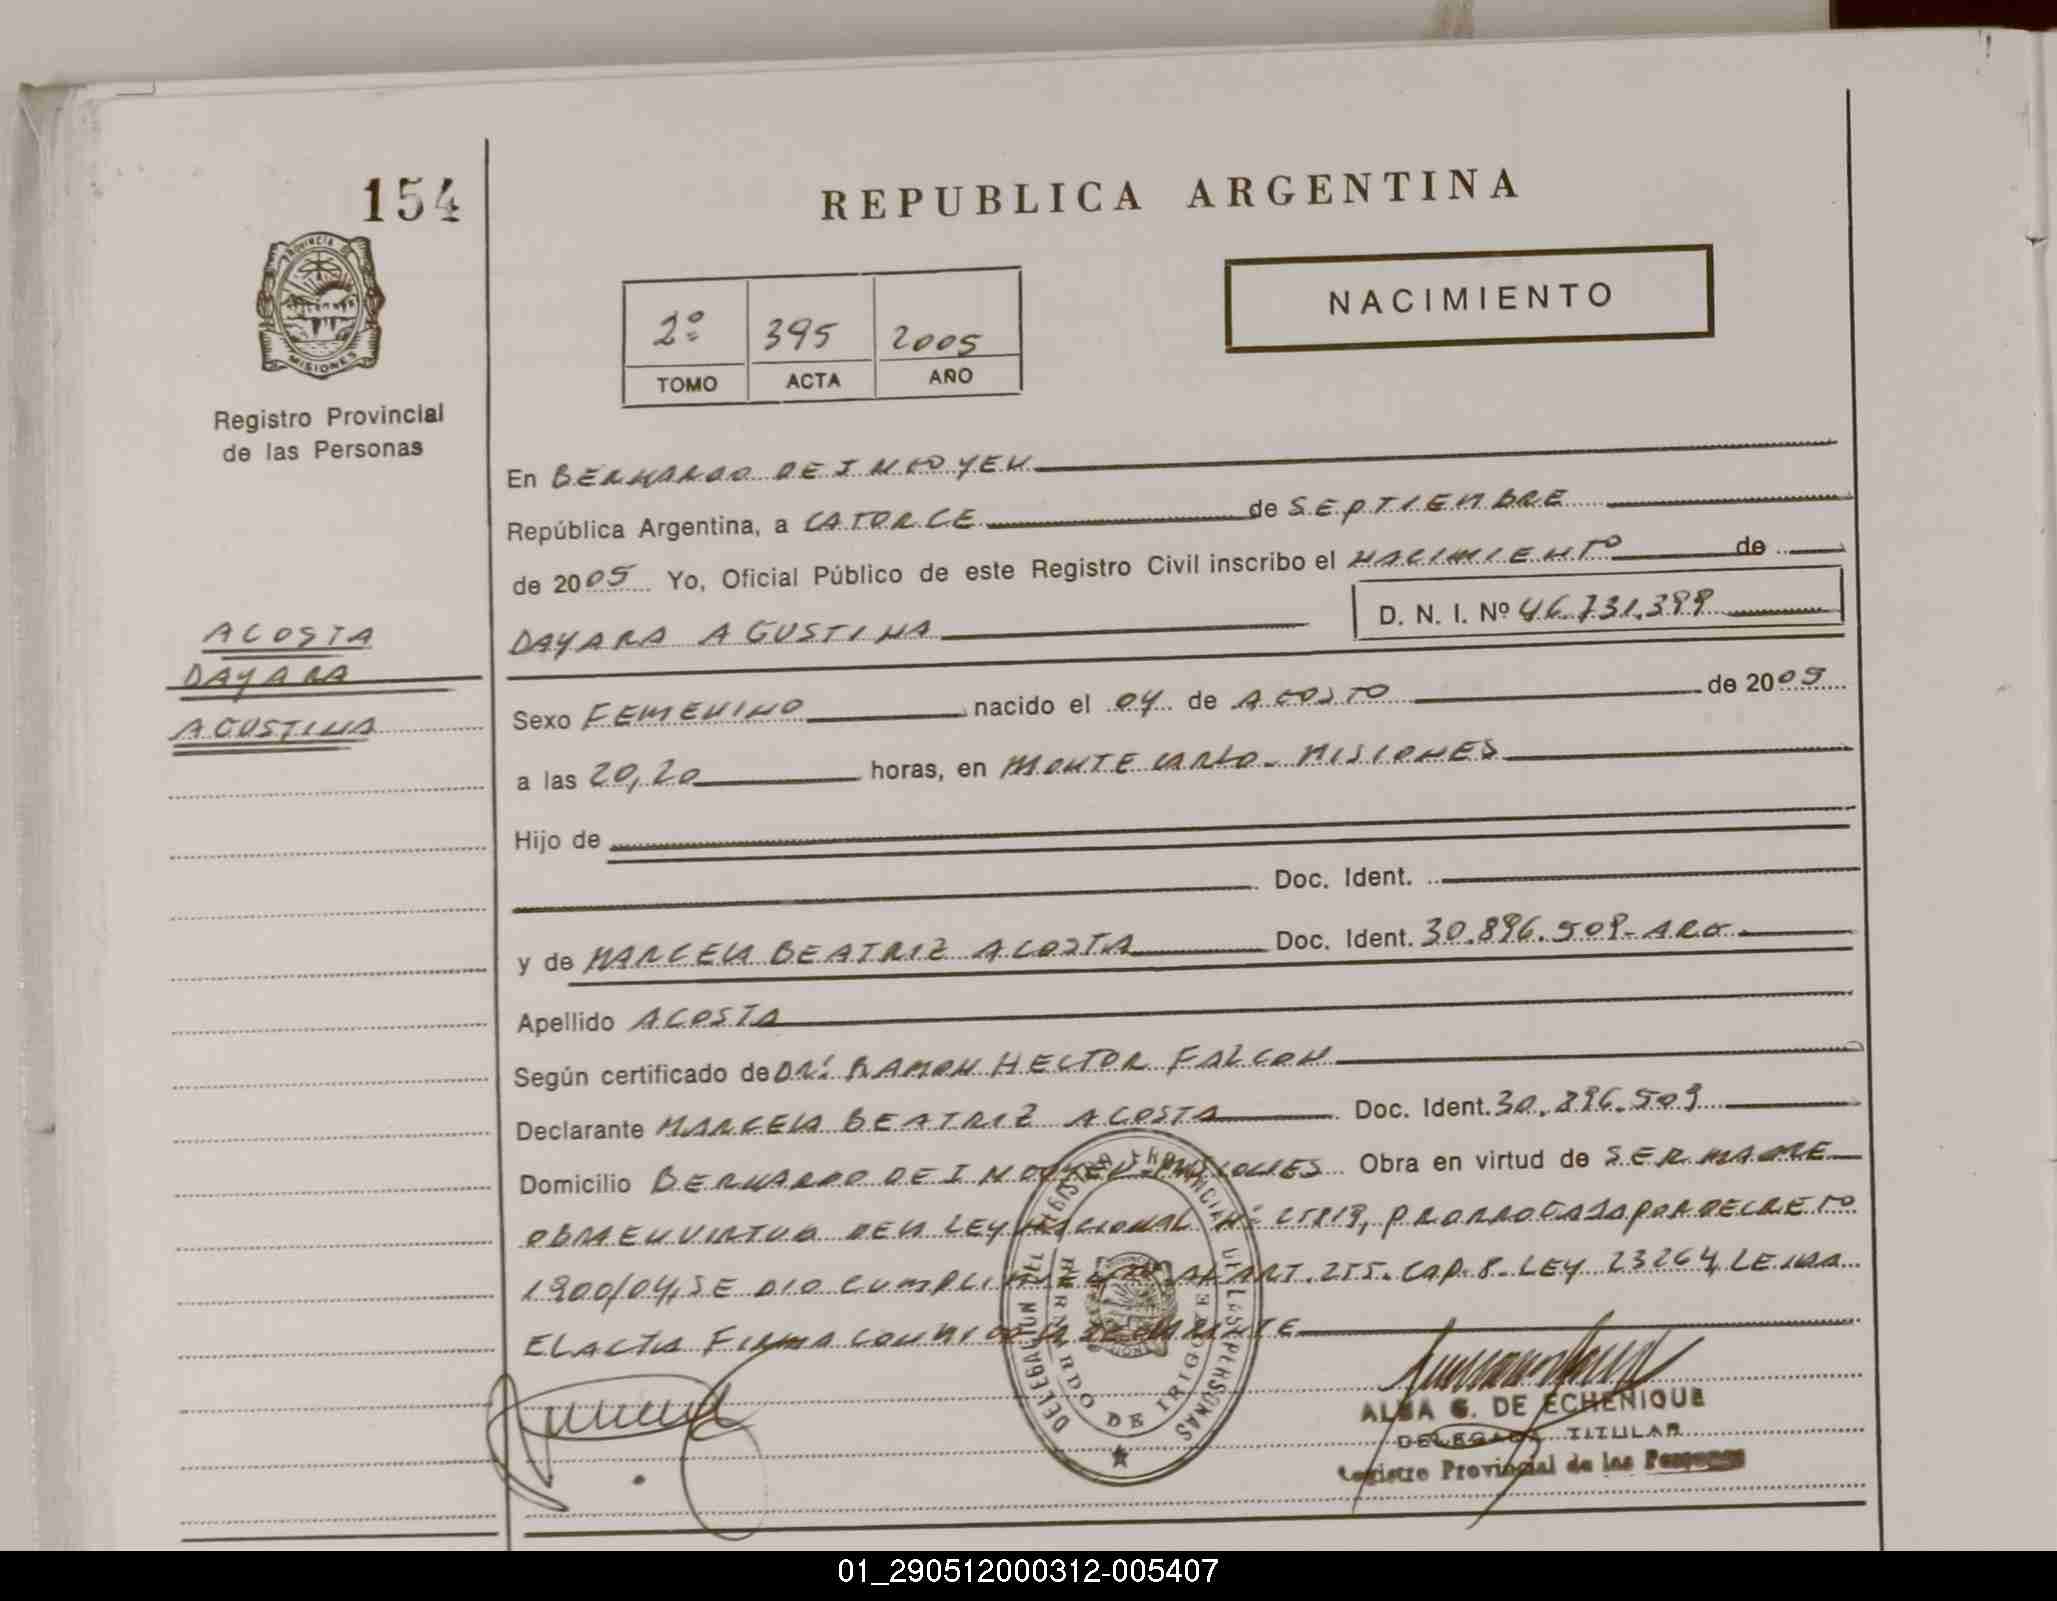 154
REPUBLICA ARGENTINA
PROVINCIA DE
MISIONES
NACIMIENTO
2º 395 2005
TOMO ACTA AÑO
Registro Provincial
de las Personas
En BERNARDO DE IRIGOYEN
República Argentina, a CATORCE de SEPTIEMBRE
de 2005 Yo, Oficial Público de este Registro Civil inscribo el NACIMIENTO de
D. N. I. Nº 46.731.399
DAYARA AGUSTINA
ACOSTA
DAYARA
AGUSTINA
Sexo FEMENINO nacido el 04 de AGOSTO de 2005
a las 20,20 horas, en MONTECARLO - MISIONES
Hijo de
Doc. Ident.
y de MARCELA BEATRIZ ACOSTA Doc. Ident. 30.896.509-ARG.
Apellido ACOSTA
Según certificado de DR. RAMON HECTOR FALCON
Declarante MARCELA BEATRIZ ACOSTA Doc. Ident. 30.896.509
Domicilio BERNARDO DE IRIGOYEN-MISIONES Obra en virtud de SER MADRE
OBRA EN VIRTUD DE LA LEY NACIONAL Nº 25819, PRORROGADA POR DECRETO
1900/04, SE DIO CUMPLIMIENTO AL ART. 255. CAP. 8. LEY 23264, LEIDA
EL ACTA FIRMA CONMIGO LA DECLARANTE
DELEGACION DEL REGISTRO PROVINCIAL DE LAS PERSONAS
BERNARDO DE IRIGOYEN
ALBA G. DE ECHENIQUE
DELEGADA TITULAR
Registro Provincial de las Personas
01_290512000312-005407